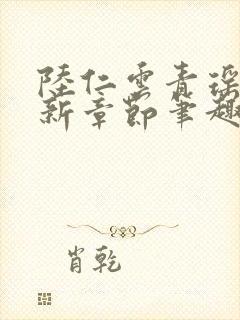 陸仁雲青瑤
新章節筆趣
肖乾